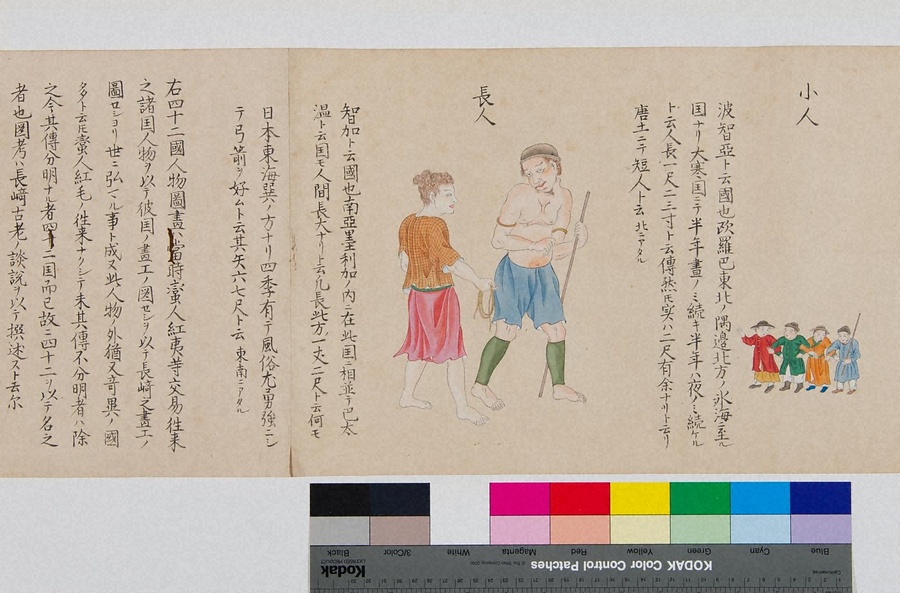 小人
波智亞ト云國也欧羅巴東北ノ隅邊北方ノ氷海ニ至ル
国ナリ大寒国ニテ半年昼ノミ続キ半年ハ夜ノミ続ケル
ト云人長一尺二三寸ト云傳然𪜈実ハ二尺有余ナリト云リ
唐土ニテ短人ト云 北ニアタル
長人
智加ト云國也南亞墨利加ノ内ニ在此国ト相並テ巴太
温ト云国モ人間長大ナリト云凡長此方ノ一丈二尺ト云何モ
日本東海巽ノ方ナリ四季有テ風俗尤勇強ニシ
テ弓箭ヲ好ムト云其矢六七尺ト云 東南ニアタル
右四十二國人物圖畫ハ當時蠻人紅夷等交易往来
之諸国人物ヲ以テ彼国ノ畫工ノ図セシヲ以テ長﨑之畫工ノ
圖ロショリ世ニ弘マル事ト成又此人物ノ外猶又竒異ノ國
タタト云𪜈蠻人紅毛ノ往来ナクシテ未其傳不分明者ハ除
之今其傳分明ナル者四十二国而已故ニ四十二ヲ以テ名之
者也図考ハ長﨑古老ノ談説ヲ以テ撰述スト云尓
Blue
Cyan
Green
Yellow
Red
Magenta
White
3/Color
Black
KODAK Color Control Patches
Kodak
LICENSED PRODUCT